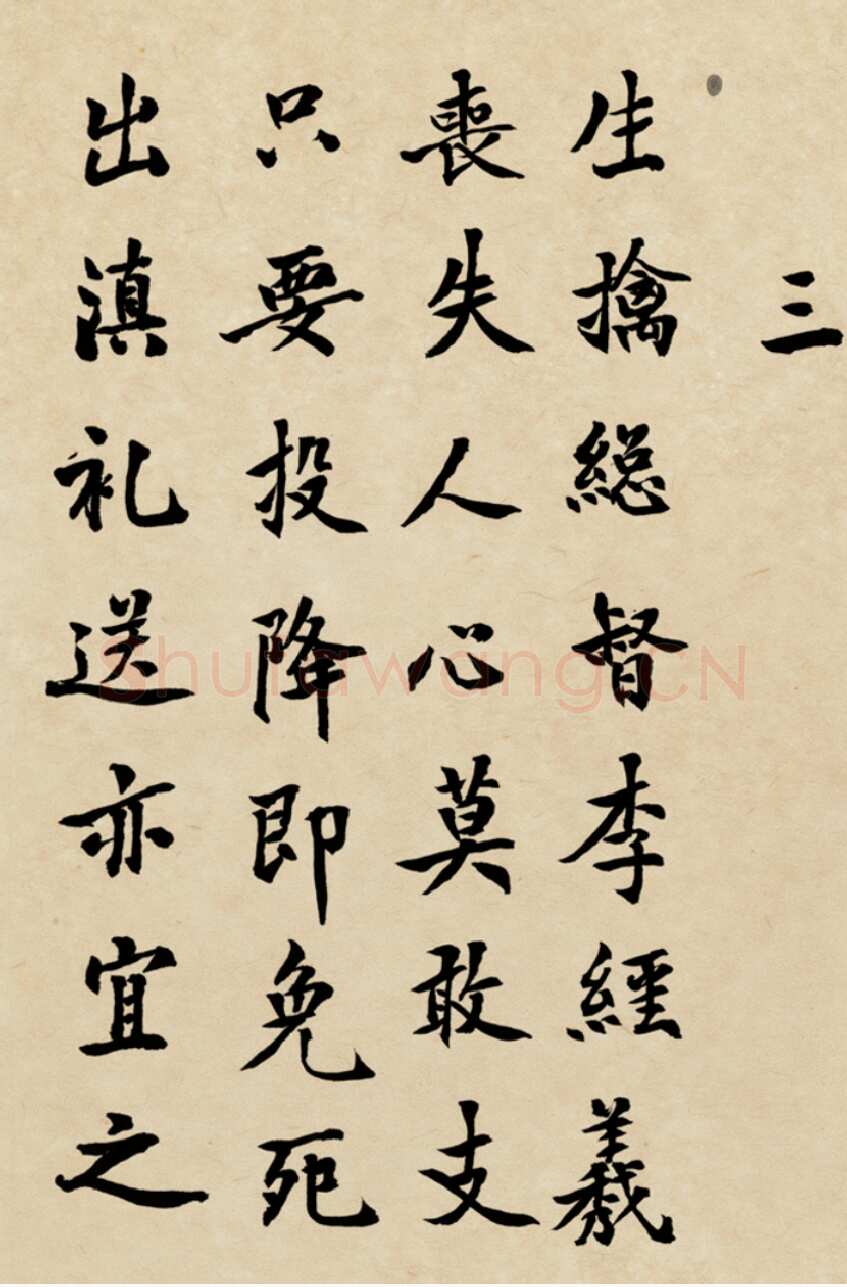 三
生擒総督李經羲
喪失人心莫敢支
只要投降即免死
出滇礼送亦宜之
Shufawang.CN